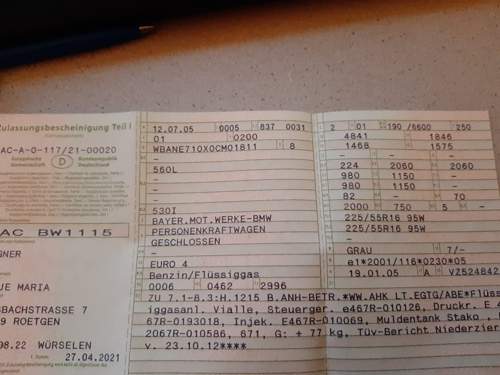 Zulassungsbescheinigung Teil I
AC-A-0-117/21-00020
Europäische Gemeinschaft D Bundesrepublik Deutschland
AC BW1115
GNER
UE MARIA
SBACHSTRASSE 7
9 ROETGEN
08.22 WÜRSELEN
27.04.2021
12.07.05 0005 837 0031
01 0200
WBANE710X0CM01811 8
-
560L
-
-
530I
BAYER.MOT.WERKE-BMW
PERSONENKRAFTWAGEN
GESCHLOSSEN
-
EURO 4
Benzin/Flüssiggas
0006 0462 2996
2 01 190 /6600 250
4841 1846
1468 1575
- -
224 2060 2060
980 1150 -
980 1150 -
82 - 70
2000 750 5 -
225/55R16 95W
225/55R16 95W
-
GRAU 7/-
e1*2001/116*0230*05
19.01.05 A VZ524842
ZU 7.1-8.3:H.1215 B.ANH-BETR.*WW.AHK LT.EGTG/ABE*Flüss
iggasanl. Vialle, Steuerger. e467R-010126, Druckr. E 4
67R-0193018, Injek. E467R-010069, Muldentank Stako,
2067R-010586, 671, G: + 77 kg, Tüv-Bericht Niederzier
v. 23.10.12****